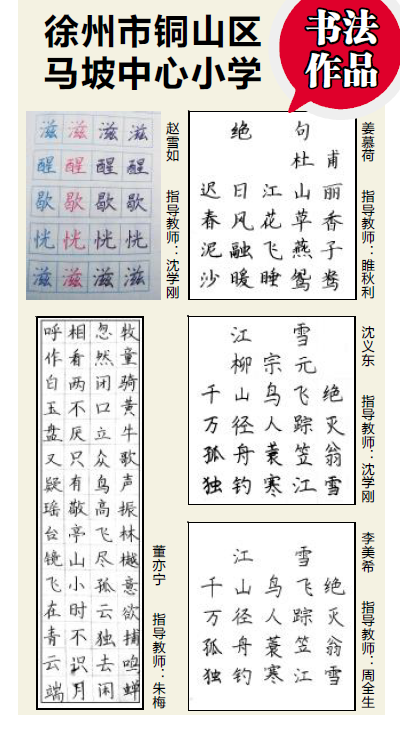 徐州市铜山区
马坡中心小学
书法
作品
滋 滋 滋 滋
醒 醒 醒 醒
歇 歇 歇 歇
恍 恍 恍 恍
滋 滋 滋 滋
赵雪如 指导教师：沈学刚
绝 句
杜 甫
迟 日 江 山 丽
春 风 花 草 香
泥 融 飞 燕 子
沙 暖 睡 鸳 鸯
姜慕荷 指导教师：睢秋利
牧童骑黄牛歌声振林樾意欲捕鸣蝉
忽然闭口立众鸟高飞尽孤云独去闲
相看两不厌只有敬亭山小时不识月
呼作白玉盘又疑瑶台镜飞在青云端
董亦宁 指导教师：朱梅
江 雪
柳 宗 元
千 山 鸟 飞 绝
万 径 人 踪 灭
孤 舟 蓑 笠 翁
独 钓 寒 江 雪
沈义东 指导教师：沈学刚
江 雪
千 山 鸟 飞 绝
万 径 人 踪 灭
孤 舟 蓑 笠 翁
独 钓 寒 江 雪
李美希 指导教师：周全生